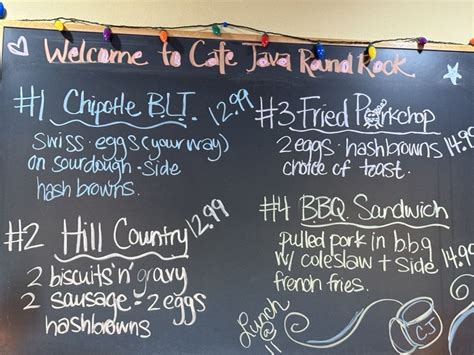 Welcome to Cafe Java Round Rock
#1 Chipotle B.L.T. 12.99
Swiss · eggs (your way)
on sourdough · side
hash browns.
#2 Hill Country 12.99
2 biscuits 'n' gravy
2 sausage - 2 eggs
hashbrowns
#3 Fried Porkchop
2 eggs · hashbrowns 14.99
choice of toast.
#4 B.B.Q. Sandwich
pulled pork in b.b.q
w/ coleslaw + side 14.99
french fries.
Lunch
@
11
C.J